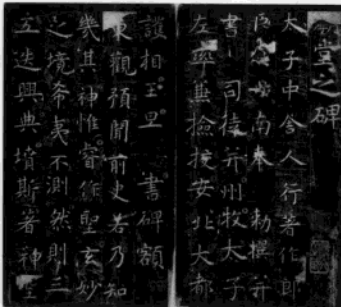 堂之碑
太子中舍人行著作郎
臣南奉勅撰并
書司徒并州牧太子
左率兼撿挍安北大都
護相王旦書碑額
東觀預聞前史若乃知
幾其神惟睿作聖玄妙
之境希夷不測然則三
五迭興典墳斯著神